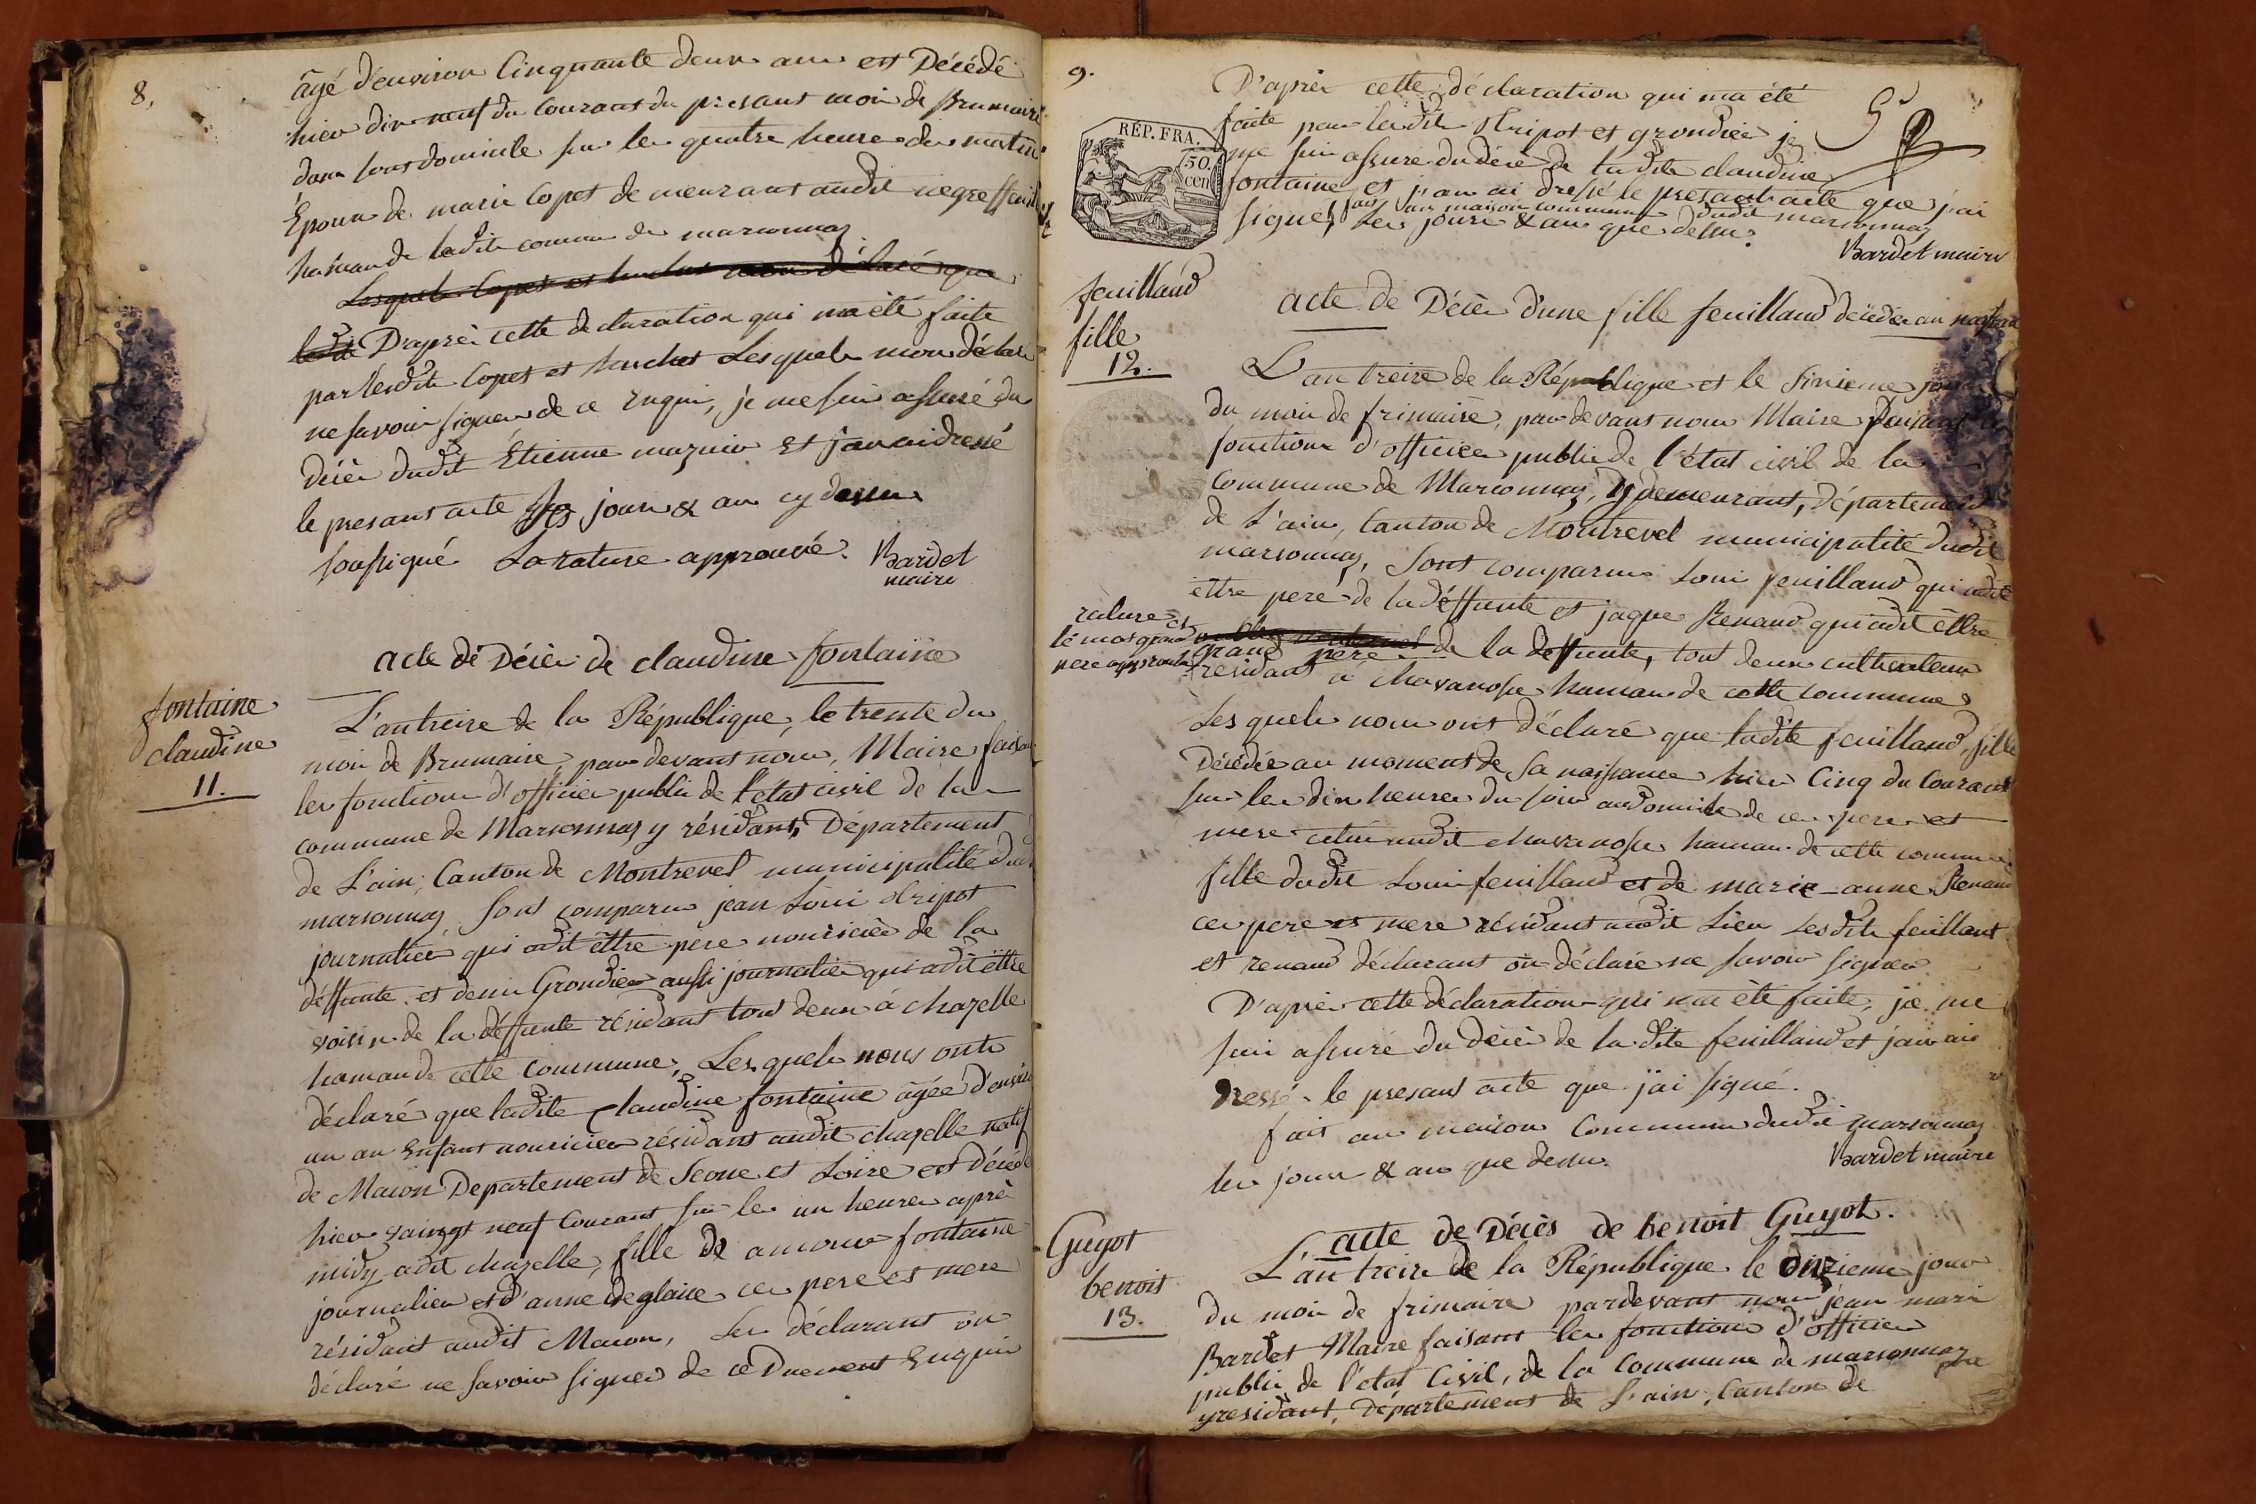 8.
âgé d'environ Cinquante deux ans est Décédé
hier dix neuf du Courant du presant mois de Brumaire
dans sont domicile sur les quatre heures du matin
Époux de marie Copet demeurant audit
hamau de ladite commune de marsonnas
Lesquels Copet et huchet mon déclaré que
lesdits D'aprés cette déclaration qui ma été faite
par lesdits Copet et huchet Lesquels mon déclaré
ne savoir signer de ce Enquis, je me suis assuré du
décés dudit Étienne mazuir et j'an ai dressé
le presant acte les jours & an cy dessus
soussigué La rature approuvé. Bardet
maire
acte de Décès de claudine fontaine
fontaine
claudine
11.
L'an treize de la République, le trente du
mois de Brumaire, par devant nous, Maire faisant
les fonctions d'officier public de l'état civil de la
commune de Marsonnas y résidant, Département
de L'ain, Canton de Montrevel municipalité dudit
marsonnas, sont comparus jean Louis Stripot
journalier qui a dit être pere nouricier de la
déffunte et denis Grondier aussi journalier qui a dit être
voisin de la déffunte résidant tous deux à chazelle
hamau de cette commune, Lesquels nous onts
déclaré que ladite claudine fontaine âgée d'environ
un an Enfant nouricier résidant audit chazelle natif
de Macon Departement de Seone et Loire est décédé
hier vaingt neuf Courant sur les un heures après
midy audit chazelle, fille de amoure fontaine
journalier et d'anne deglaise ces pere et mere
résidant audit Macon, Les déclarant on
déclaré ne savoir signer de ce Duement Enquis
9.
D'aprés cette déclaration qui ma été
faite par lesdits Stripot et grondier je
me suis assuré du décé de ladite claudine
fontaine et j'an ai dressé le presant acte que j'ai
signé, fait an maison commune dudit marsonnas
Les jours & an que dessus.
Bardet maire
RÉP. FRA.
50.
cen
feuilland
fille
12.
acte de Décès d'une fille feuilland décédée an naissant
L'an treize de la République et le sixieme jour
du mois de frimaire, par devant nous Maire faisant les
fonctions d'officier public de l'état civil de la
Commune de Marsonnas, y demeurant, département
de L'ain, Canton de Montrevel municipalité dudit
marsonnas, sont comparus Louis feuilland qui a dit
être pere de la déffunte et jaque Renaud qui a dit être
rature et
le mot grand
pere approuvé
grand pere de la deffunte, tout deux cultivateur
résidant à chavanosse hamau de cette commune
Lesquels nous ont déclaré que ladite feuilland, fille
Décédée au moment de sa naissance hier Cinq du Courant
sur les dix heures du soir au domicile de ces pere et
mere audit chavanosse hamau de cette commune
fille dudit Louis feuilland et de marie-anne Renaud
ces pere et mere résidant audit Lieu Lesdits feuilland
et renaud déclarant on déclaré ne savoir signer
D'aprés cette déclaration qui ma été faite, je me
suis assuré du décés de la dite feuilland et j'an ai
dressé le presant acte que j'ai signé.
fait an maison Commune dudit marsonnas
les jours & an que dessus.
Bardet maire
Guyot
benoit
13.
L'acte de Décès de benoit Guyot.
L'an treize de la République le dixieme jour
du mois de frimaire pardevant nous jean marie
Bardet Maire faisant les fonctions d'officier
public de l'état Civil, de la Commune de marsonnas
y residant, Département de L'ain, Canton de